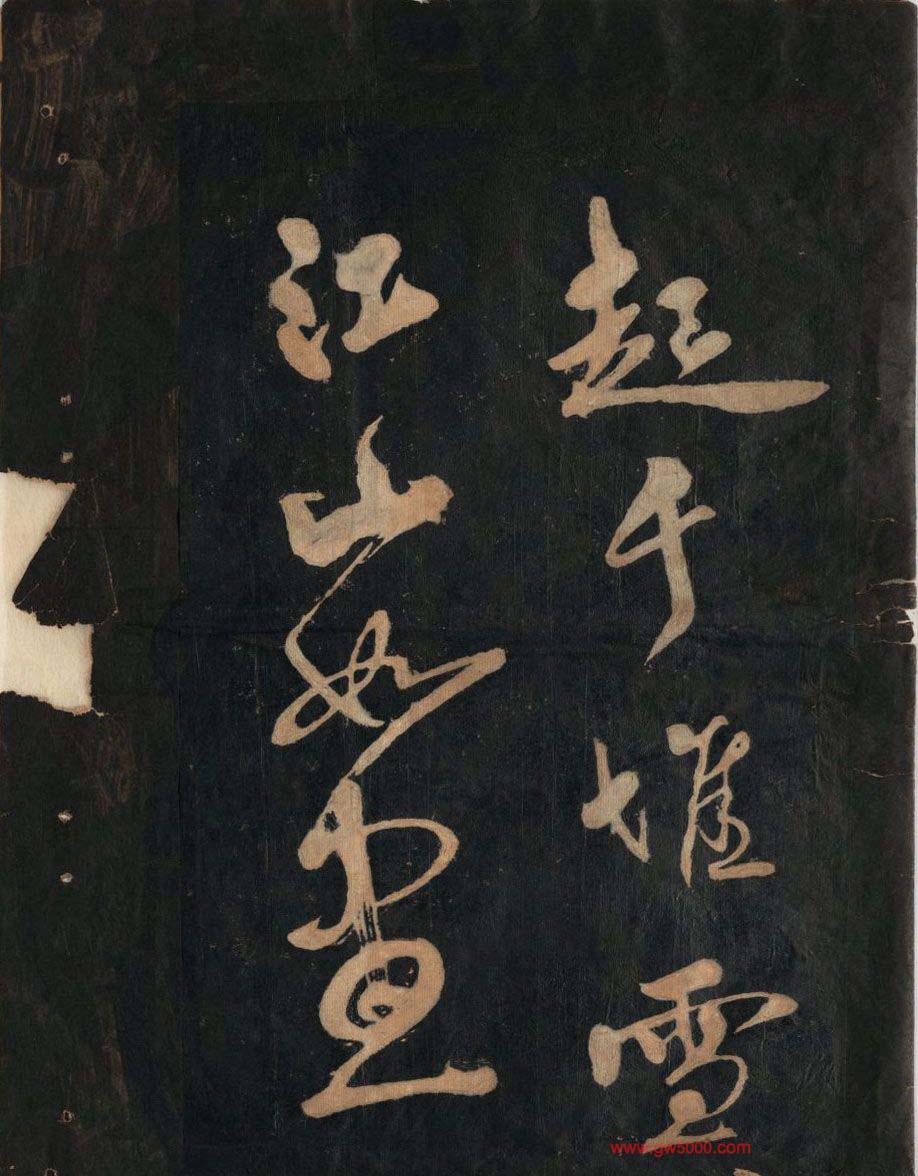 起千堆雪
江山如畫
www.gw5000.com